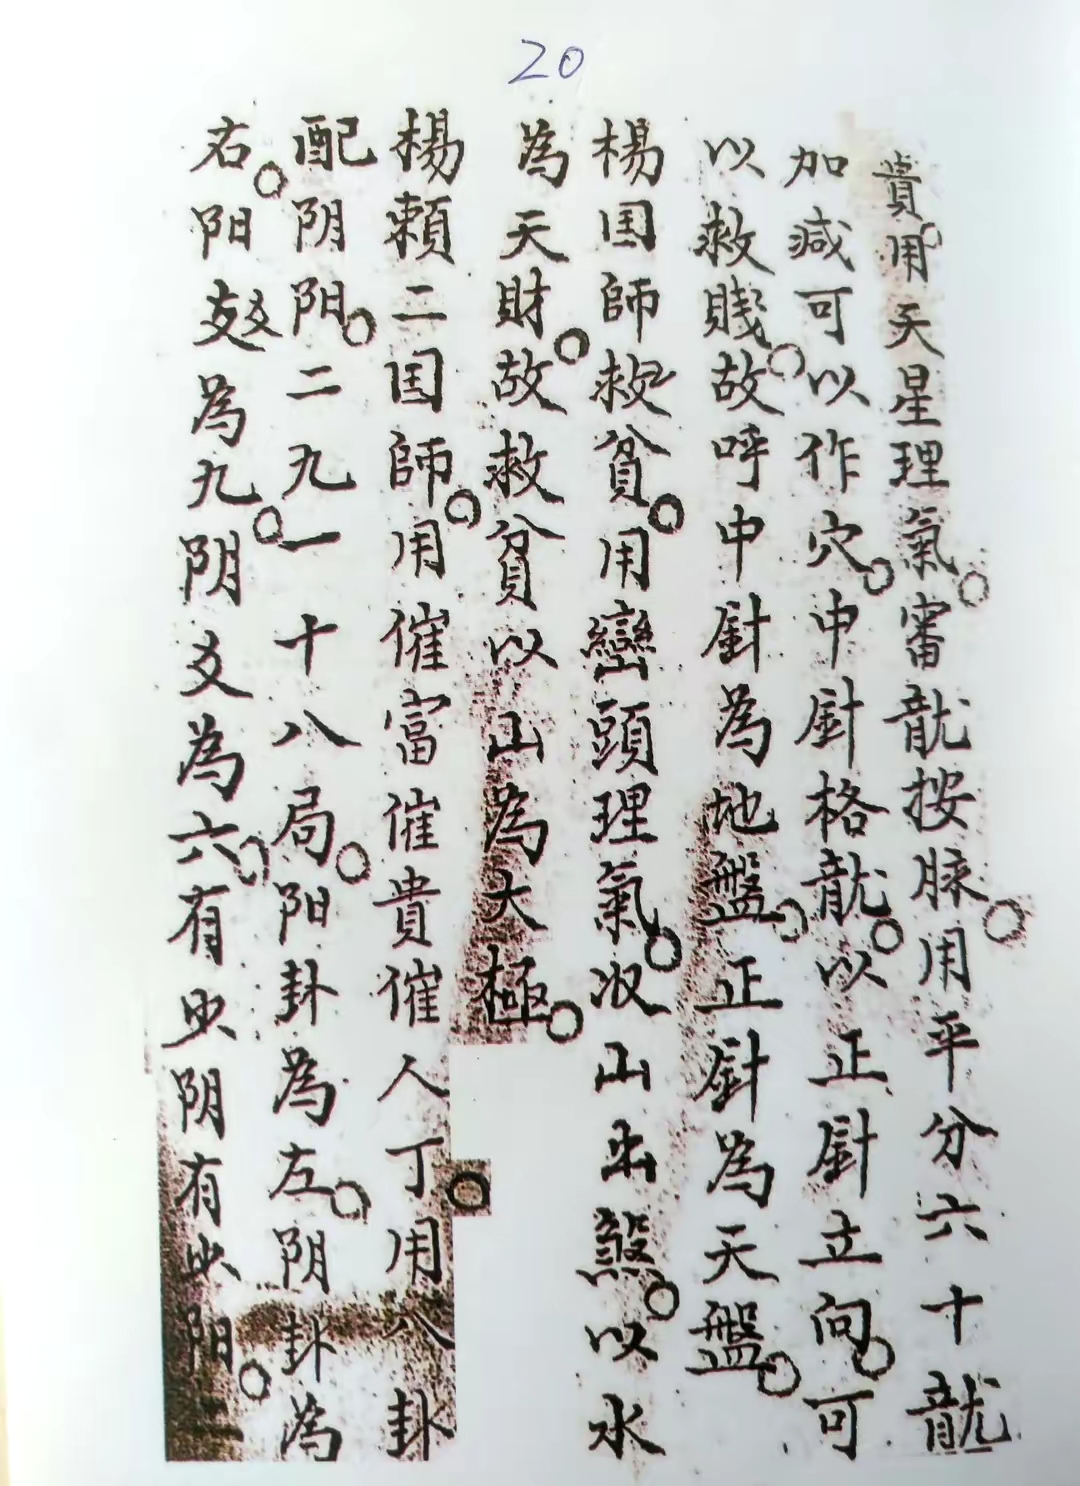 20
貴。用天星理氣。審龍按脉。用平分六十龍
加减可以作穴。中針格龍。以正針立向。可
以救賤。故呼中針為地盤。正針為天盤。
楊国師救貧。用巒頭理氣。收山出煞。以水
為天財。故救貧以山為大極。
楊賴二国師。用催富催貴催人丁。用八卦
配阴阳。二九一十八局。阳卦為左。阴卦為
右。阳爻為九。阴爻為六。有少阴有少阳。二